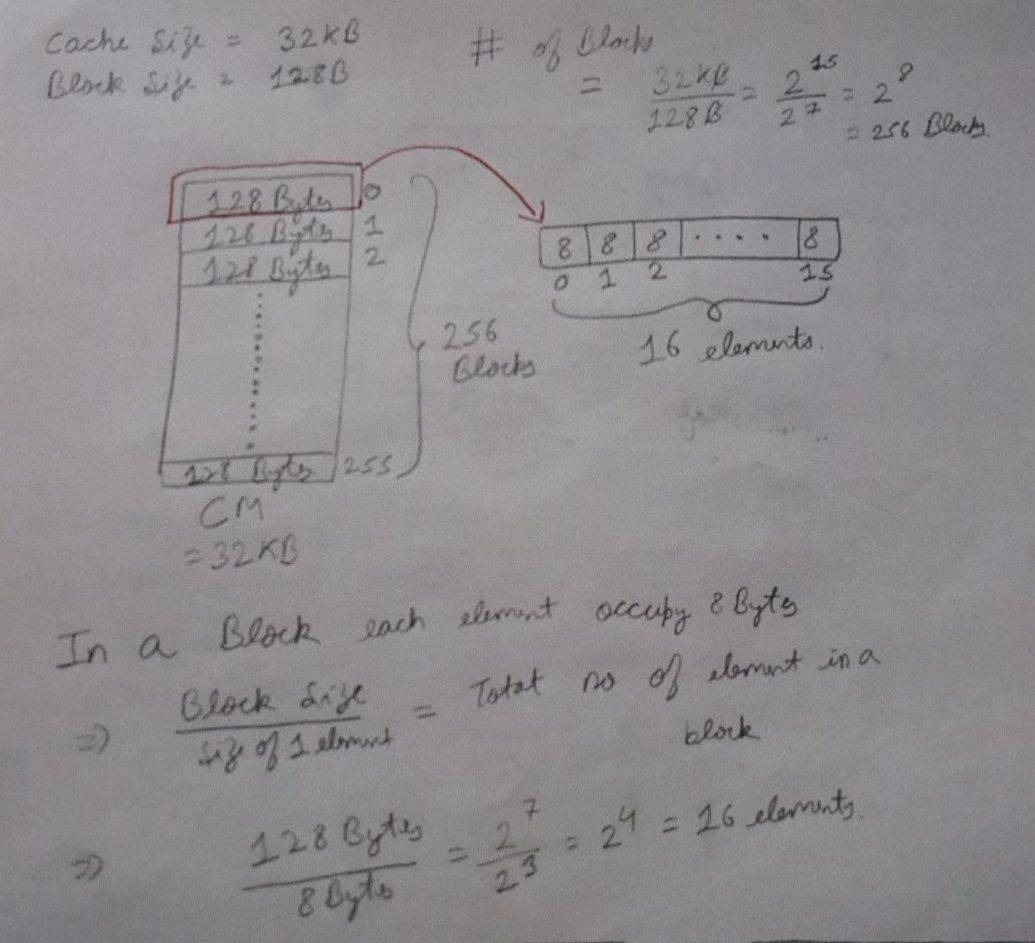 Cache Size = 32KB
Block Size = 128B
# of Blocks
= 32KB / 128B = 2^15 / 2^7 = 2^8
= 256 Blocks.
128 Bytes 0
128 Bytes 1
128 Bytes 2
128 Bytes 255
256
Blocks
CM
= 32KB
8 8 8 .... 8
0 1 2 15
16 elements.
In a Block each element occupy 8 Bytes
=> Block Size / Size of 1 element = Total no of element in a
block
=> 128 Bytes / 8 Bytes = 2^7 / 2^3 = 2^4 = 16 elements.